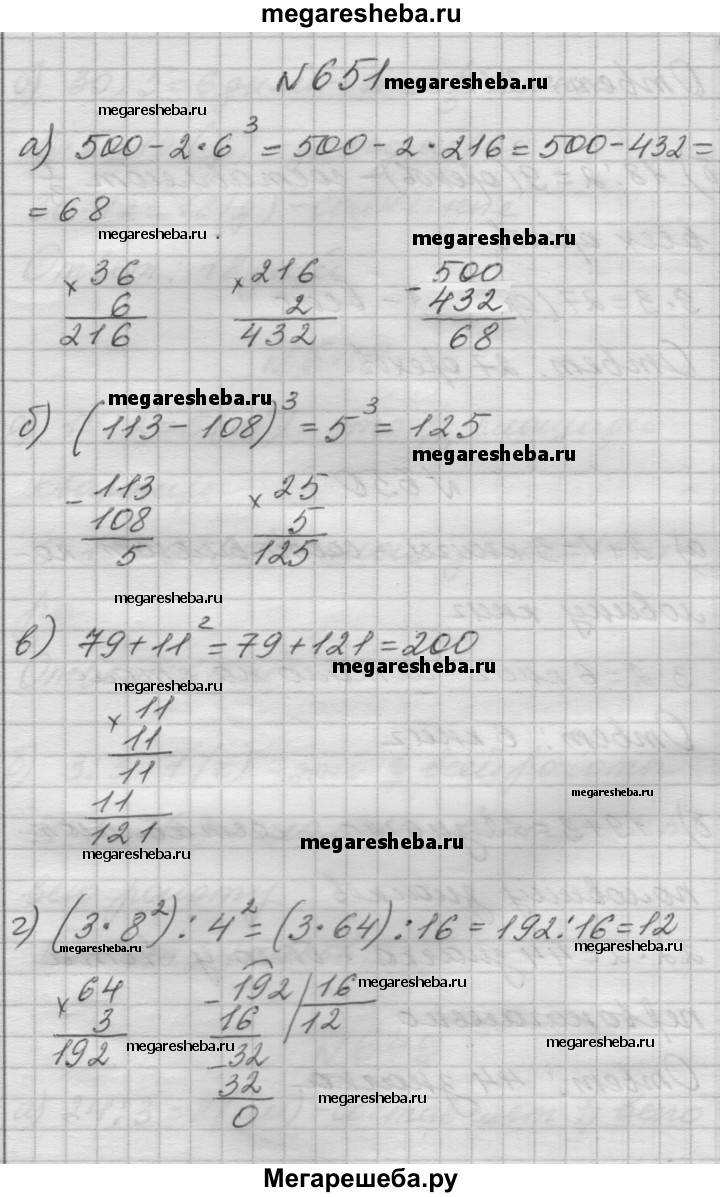 megaresheba.ru
N 651 megaresheba.ru
megaresheba.ru
а) 500 - 2 · 6³ = 500 - 2 · 216 = 500 - 432 =
= 68
megaresheba.ru
megaresheba.ru
× 36 × 216 - 500
6 2 432
216 432 68
megaresheba.ru
б) (113 - 108)³ = 5³ = 125
megaresheba.ru
- 113 × 25
108 5
5 125
megaresheba.ru
в) 79 + 11² = 79 + 121 = 200
megaresheba.ru
megaresheba.ru
× 11
11
11
11
121
megaresheba.ru
megaresheba.ru
megaresheba.ru
г) (3 · 8²) : 4² = (3 · 64) : 16 = 192 : 16 = 12
megaresheba.ru
megaresheba.ru
megaresheba.ru
× 64 - 192 16
3 16 12
192 - 32
megaresheba.ru
megaresheba.ru
32
megaresheba.ru
0
Мегарешеба.ру